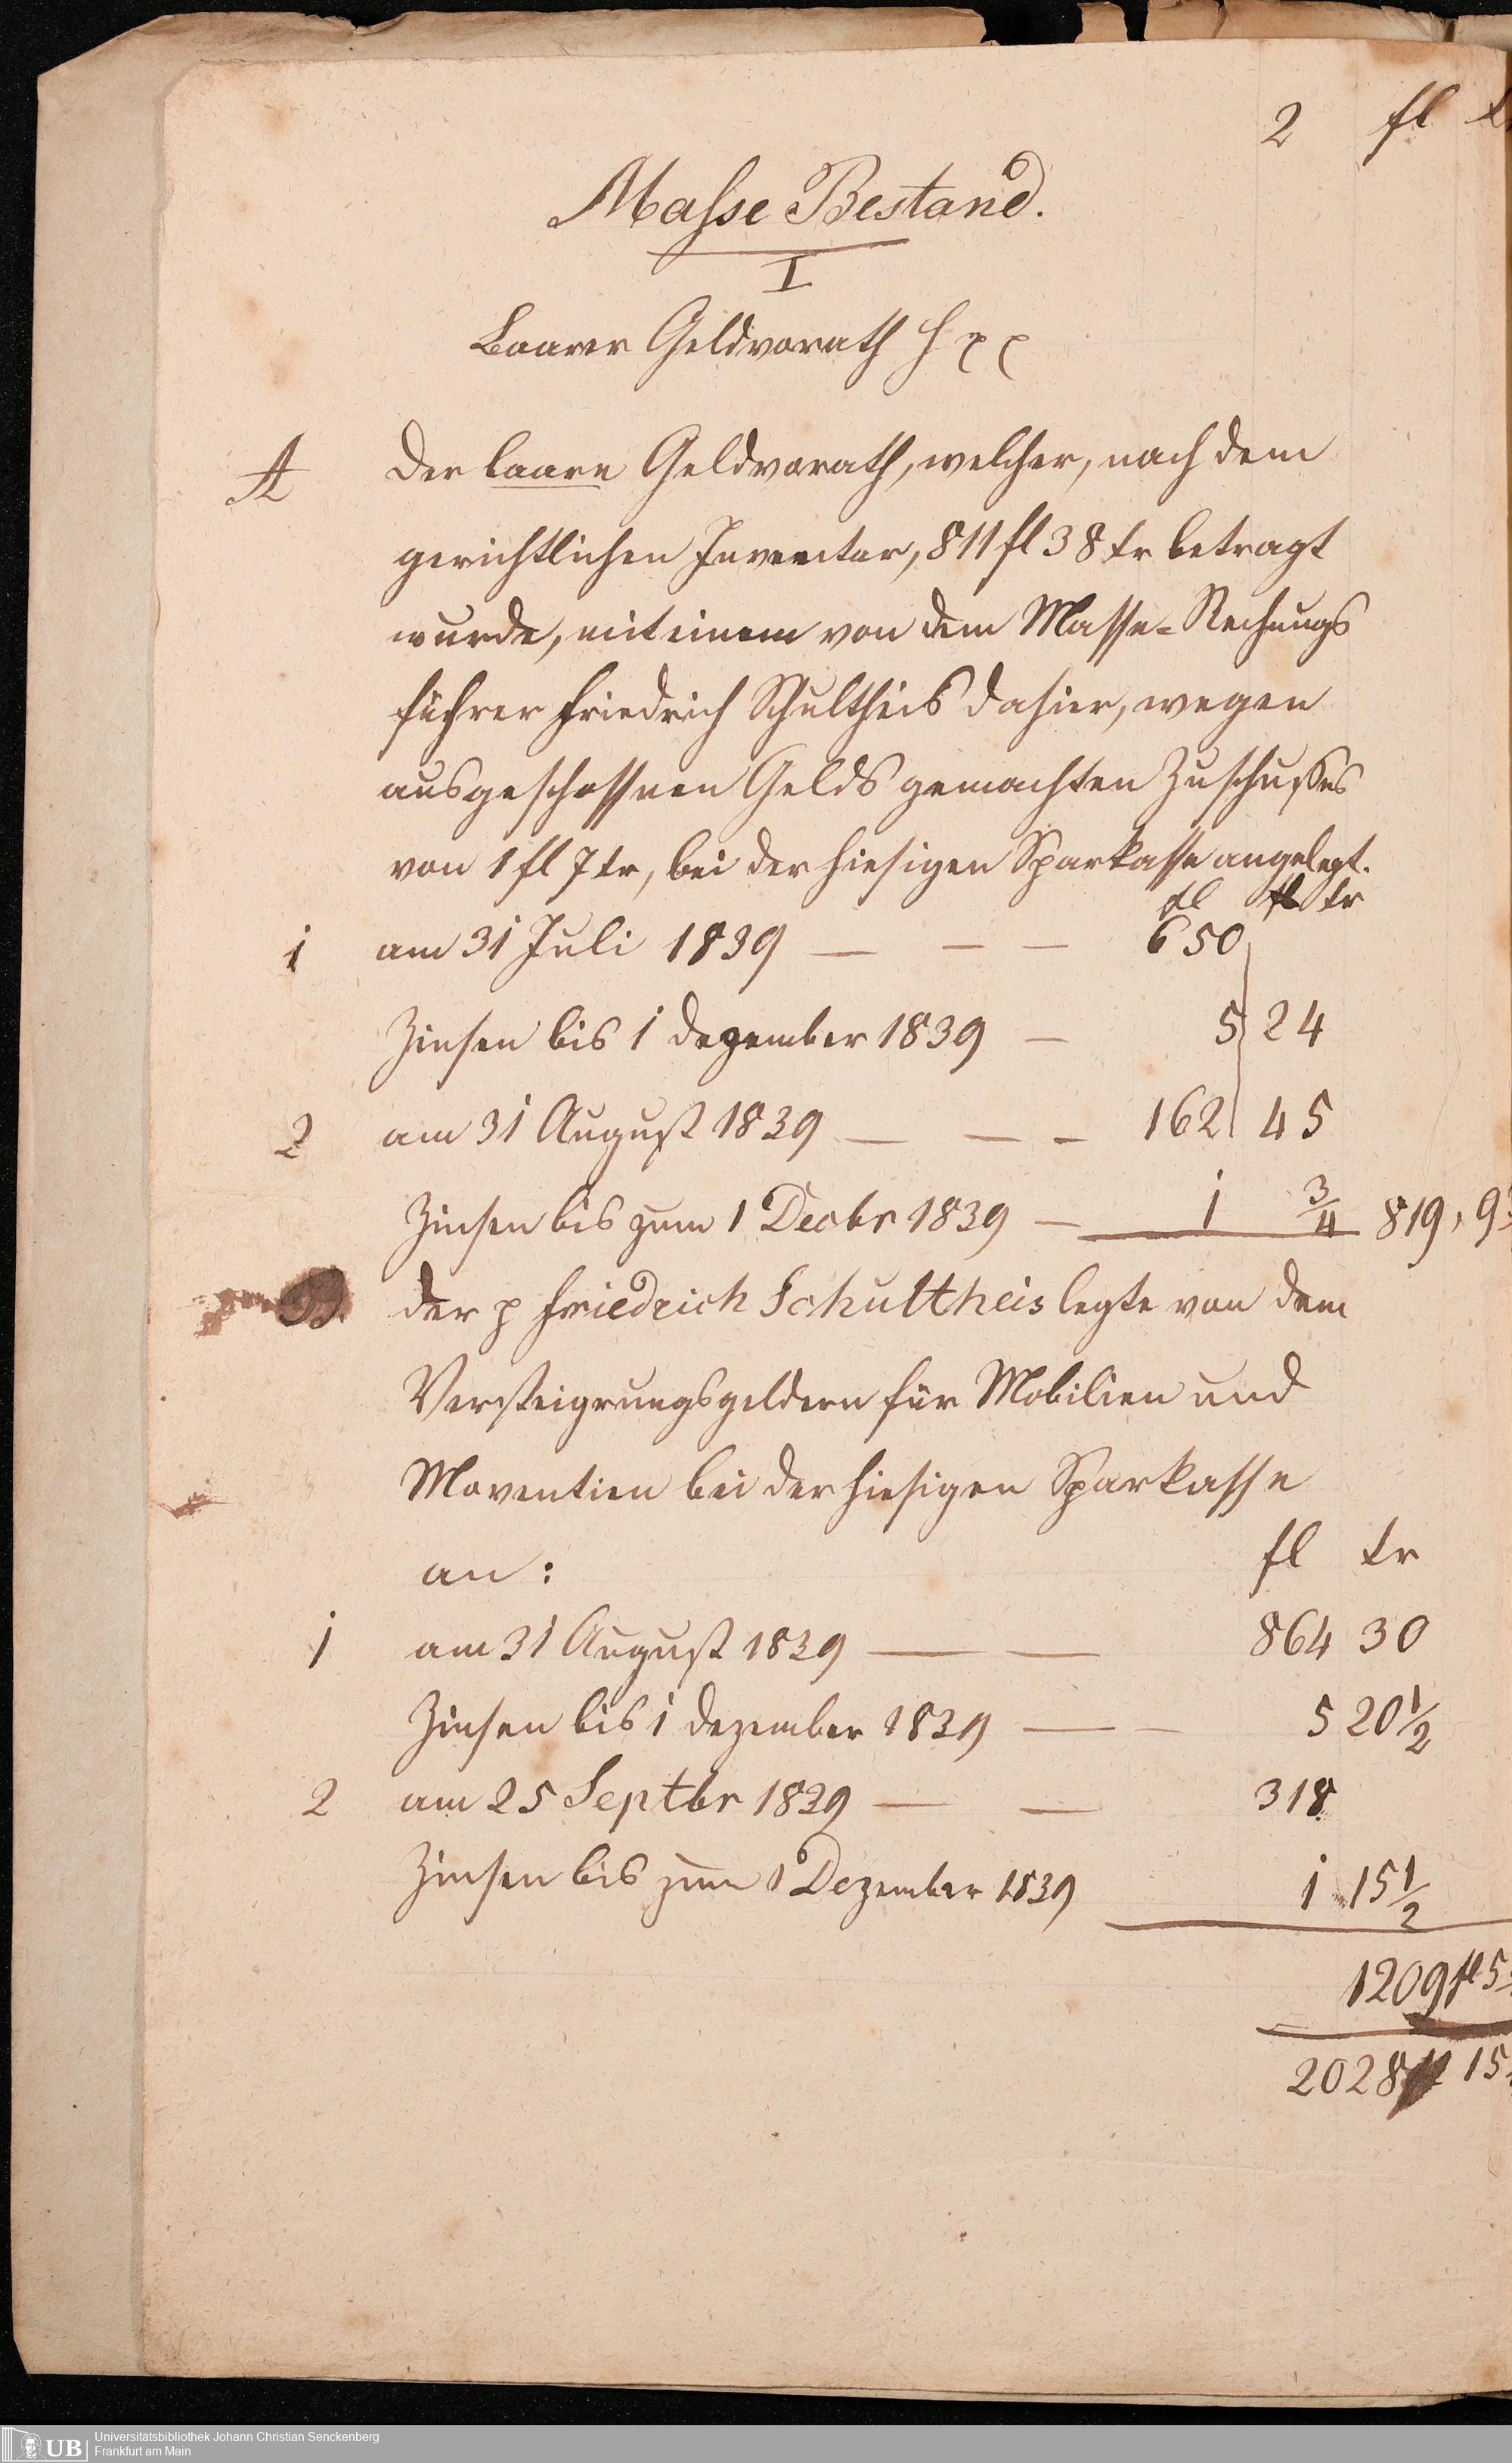 2 fl
Masse Bestand.
I
Baarer Geldvorath
A Der baare Geldvorath, welcher, nach dem
gerichtlichen Inventar, 811 fl 38 kr betragt
wurde, mit einem von dem Masse-Rechnungs
führer Friedrich Schultheis dahier, wegen
ausgeschossnen Gelds gemachten Zuschußes
von 1 fl 7 kr, bei der hiesigen Sparkasse angelegt.
fl kr
1 am 31 Juli 1839 — — — 650
Zinsen bis 1 Dezember 1839 — 5 24
2 am 31 August 1839 — — — 162 45
Zinsen bis zum 1 Decbr 1839 — 1 3/4 819, 9
B. Der p Friedrich Schultheis legte von dem
Versteigrungsgeldern für Mobilien und
Moventien bei der hiesigen Sparkasse
an: fl kr
1 am 31 August 1839 — — 864 30
Zinsen bis 1 Dezember 1839 — — 5 20 1/2
2 am 25 Septbr 1839 — — 318
Zinsen bis zum 1 Dezember 1839 1 15 1/2
1209 fl 5
2028 fl 15
UB Universitätsbibliothek Johann Christian Senckenberg
Frankfurt am Main